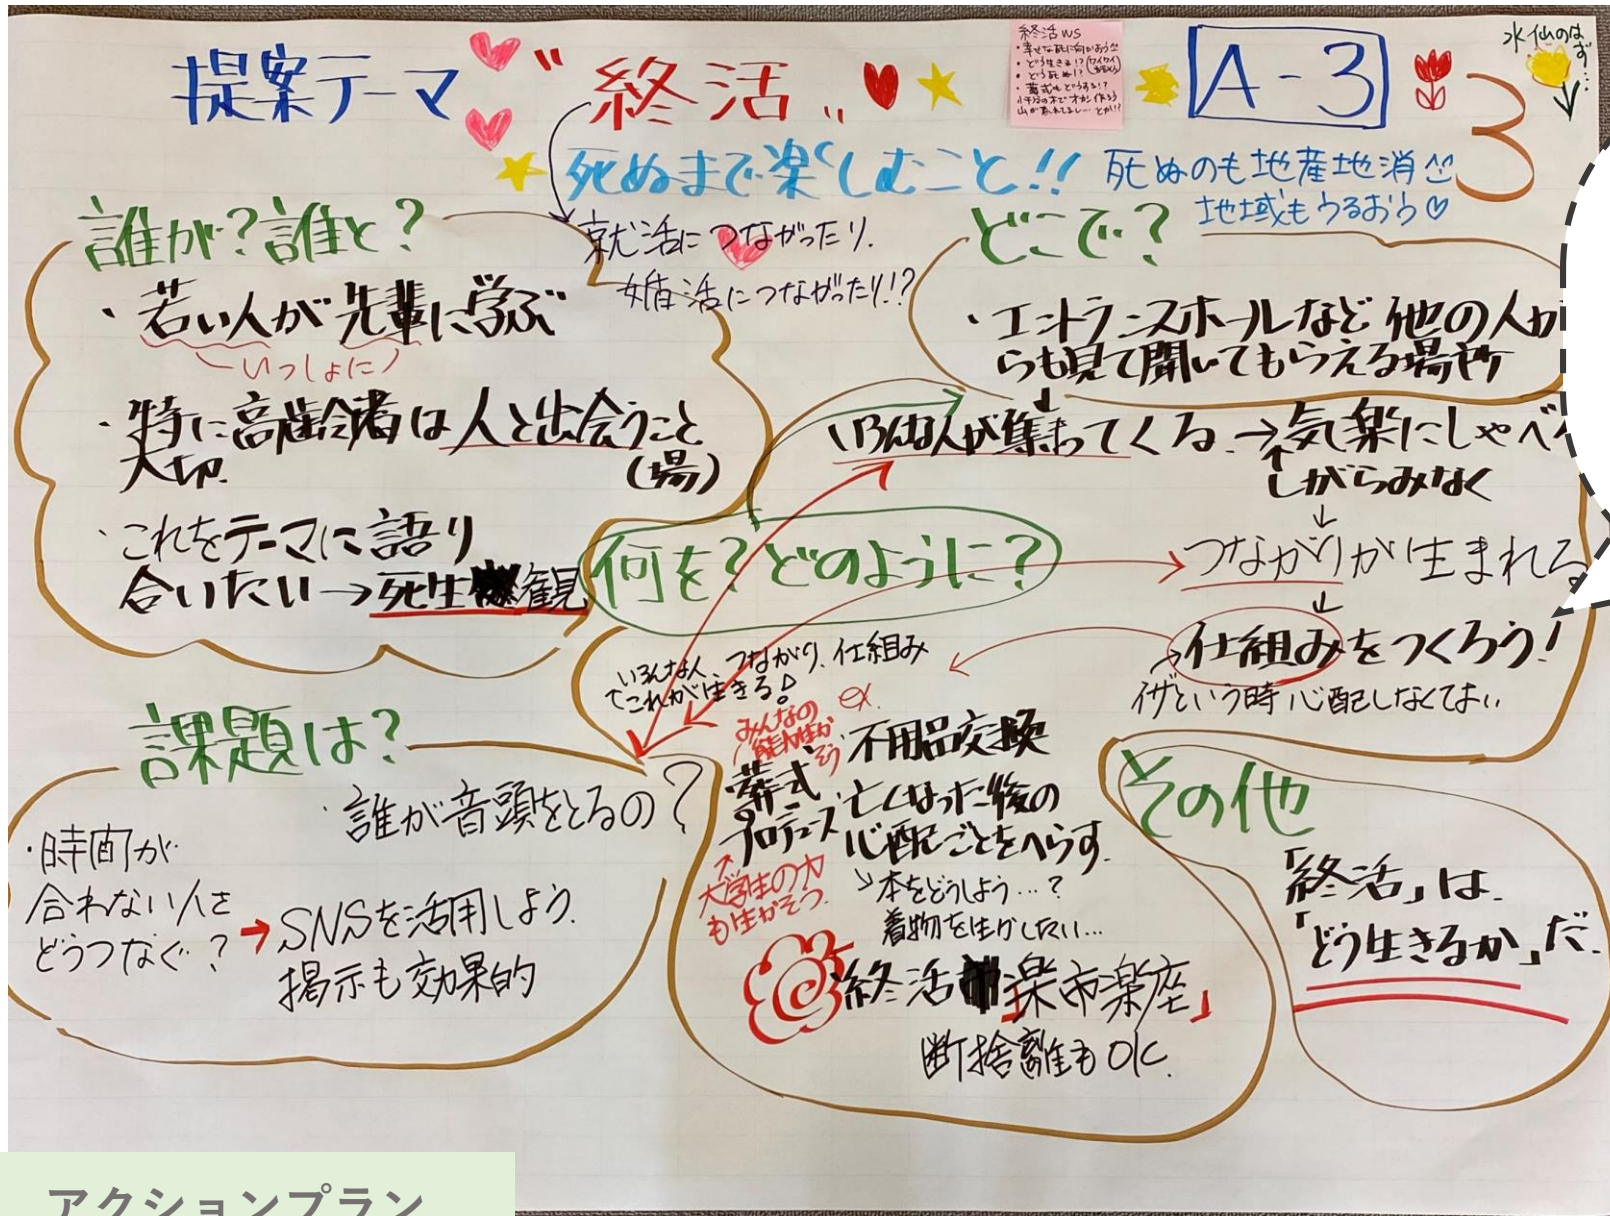 提案テーマ
"終活"
終活WS
・幸せな死に向かおう
・どう生きる!?
・どう死ぬ!?
・葬式もどうする!?
A-3
水仙のはず…
3
死ぬまで楽しむこと!!
死ぬのも地産地消
地域もうるおう♡
就活につながったり、
婚活につながったり!?
誰が?誰と?
・若い人が先輩に学ぶ
いっしょに
・特に高齢者は人と出会うこと
大切 (場)
・これをテーマに語り
合いたい→死生観
どこで?
・エントランスホールなど他の人か
らも見て聞いてもらえる場所
いろんな人が集まってくる→気楽にしゃべ
↑しがらみなく
↓
つながりが生まれる
↓
仕組みをつくろう!
イザという時心配しなくてよい
何を?どのように?
いろんな人、つながり、仕組み
これが生きる!
ex.
みんなの
不用品交換
・葬式
プロデュース
大学生の力
も生かそう
・亡くなった後の
心配ごとをへらす
本をどうしよう…?
着物を生かしたい…
終活楽市楽座」
断捨離もOK
課題は?
・誰が音頭をとるの?
・時間が
合わない人を
どうつなぐ?
→SNSを活用しよう
掲示も効果的
その他
「終活」は
「どう生きるか」だ
アクションプラン